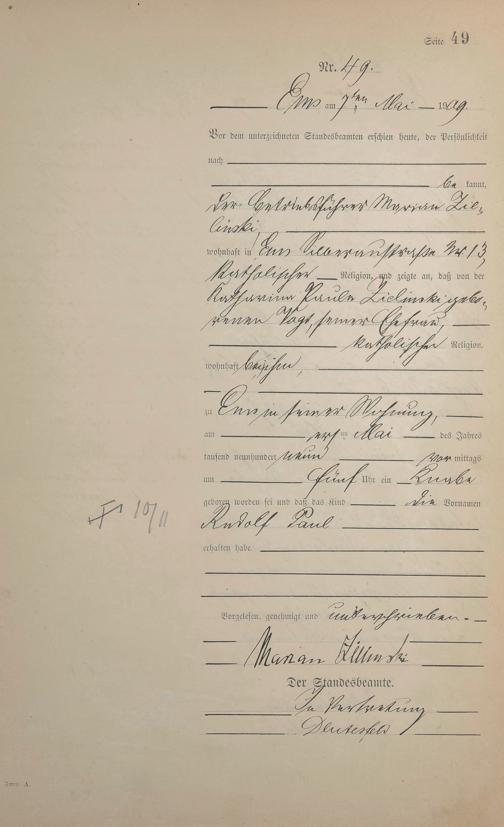 Seite 49
Nr. 49.
Ems am 7ten Mai 1909.
Vor dem unterzeichneten Standesbeamten erschien heute, der Persönlichkeit
nach
be kannt,
der Betriebsführer Marian Zie-
linski,
wohnhaft in Ems Silberaustraße Nr. 13,
katholischer Religion, und zeigte an, daß von der
Katharina Paula Zielinski gebo-
renen Vogt, seiner Ehefrau,
katholischer Religion,
wohnhaft bei ihm,
zu Ems in seiner Wohnung,
am ersten Mai des Jahres
tausend neunhundert neun vor mittags
um fünf Uhr ein Knabe
geboren worden sei und daß das Kind die Vornamen
Rudolf Paul
erhalten habe.
Vorgelesen, genehmigt und unterschrieben.
Marian Zielinski
Der Standesbeamte.
In Vertretung
Form A.